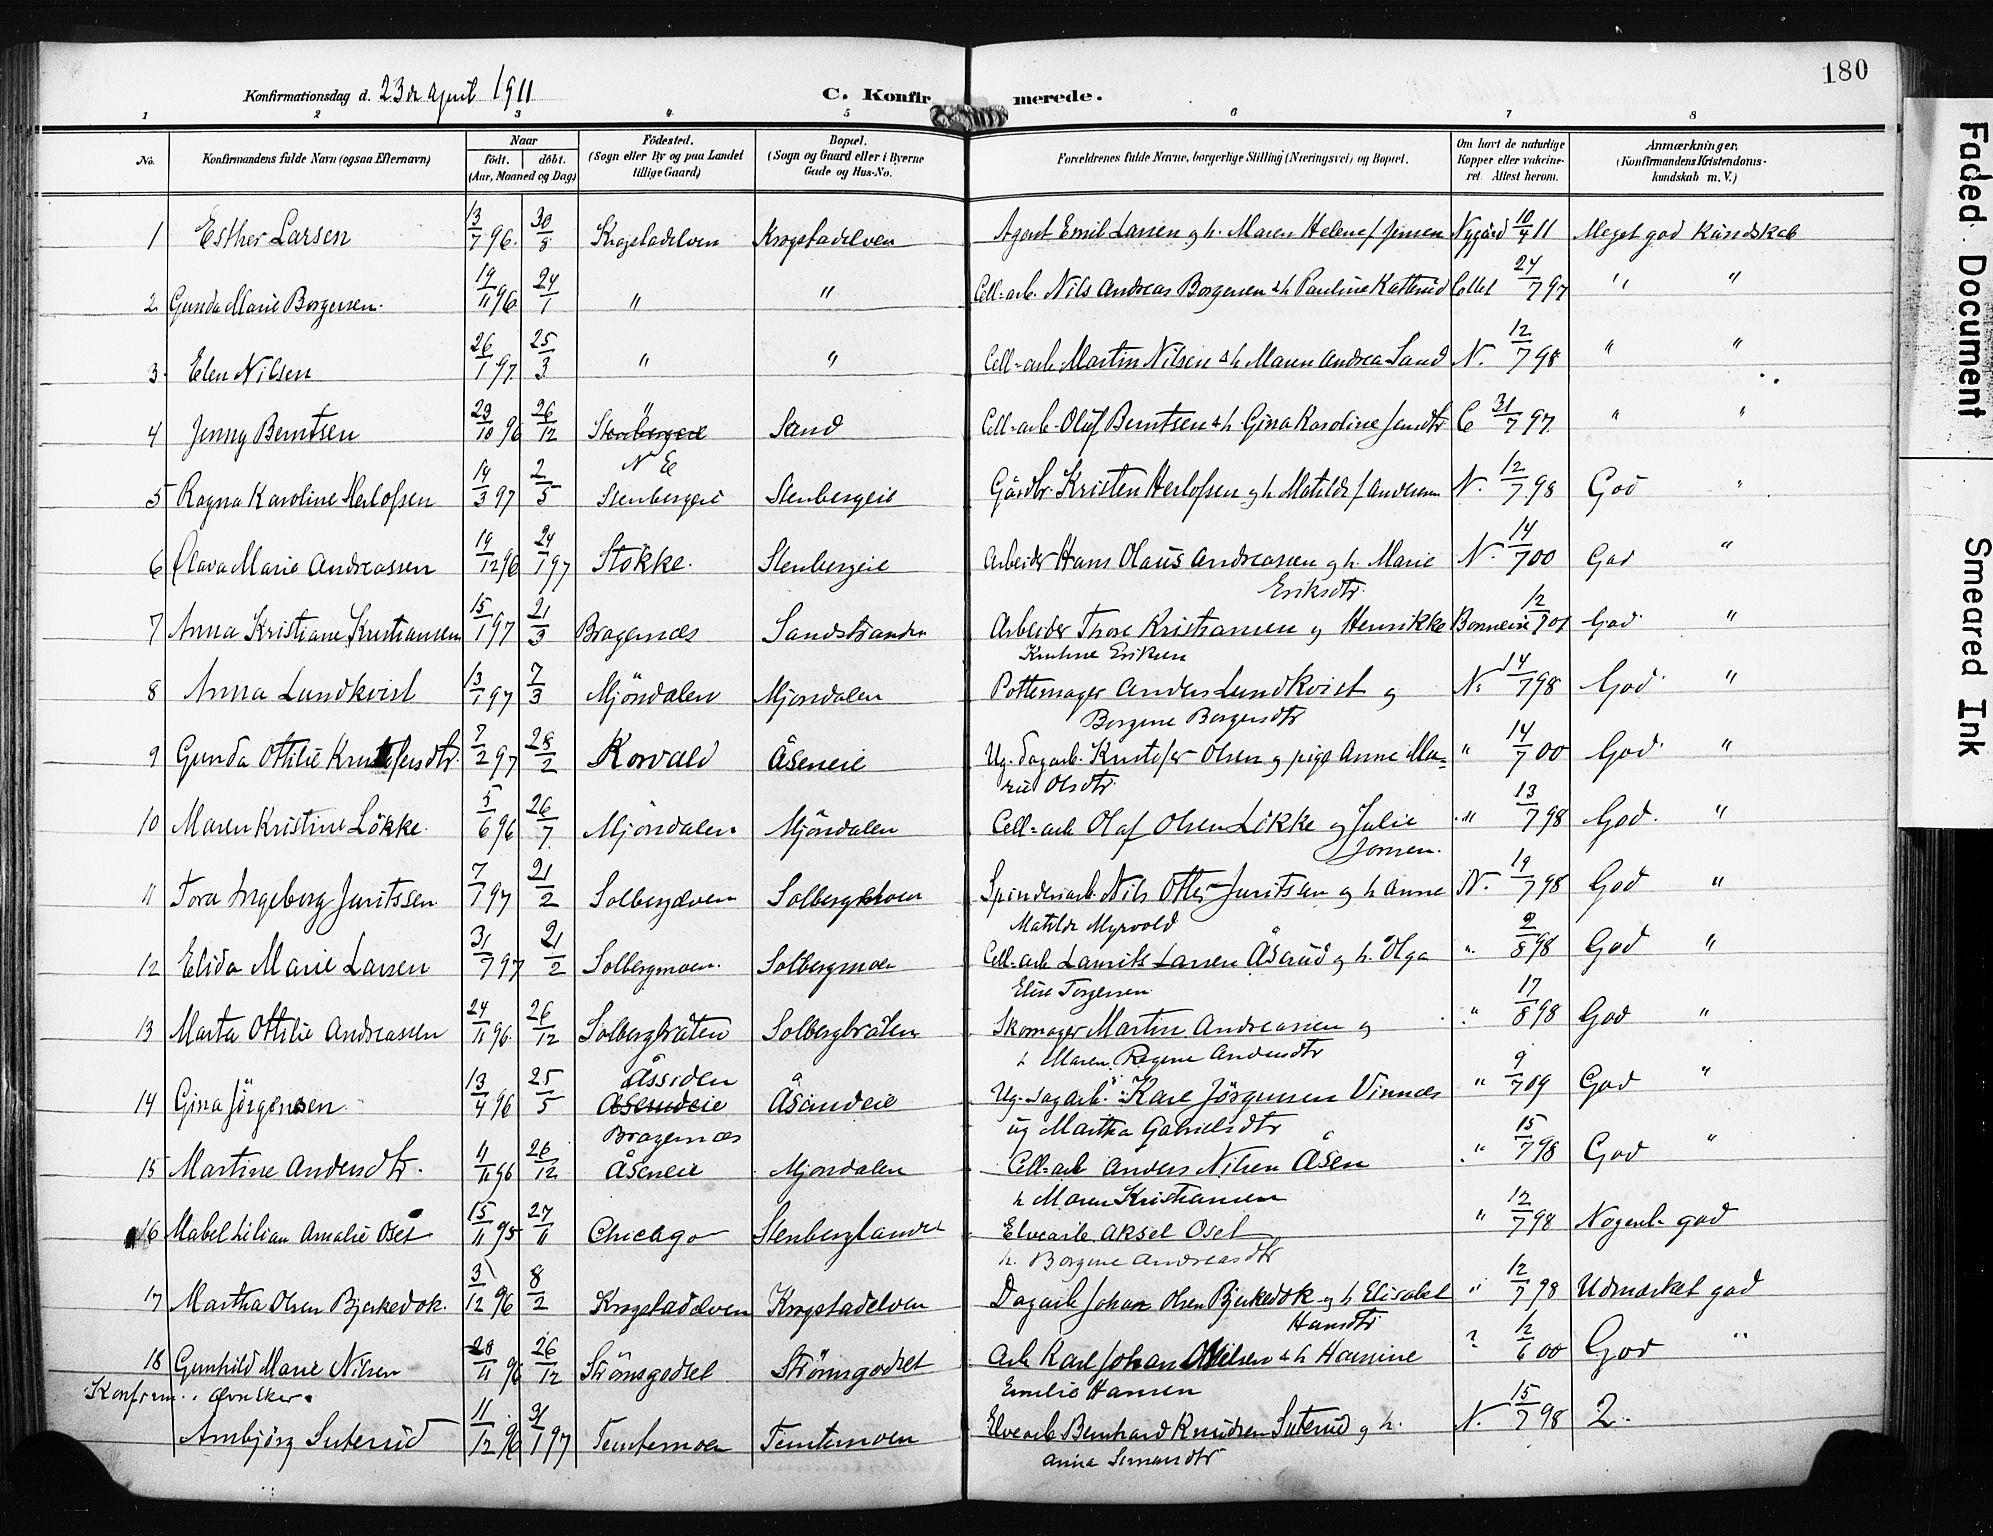 180
Konfirmationsdag d. 23de April 1911
C. Konfirmerede.
1 2 3 4 5 6 7 8
No. Konfirmandens fulde Navn (ogsaa Efternavn) Naar født. døbt. (Aar, Maaned og Dag) Fødested. (Sogn eller By og paa Landet tillige Gaard) Bopæl. (Sogn og Gaard eller i Byerne Gade og Hus-No. Forældrenes fulde Navne, borgerlige Stilling (Næringsvei) og Bopæl. Om havt de naturlige Kopper eller vakcineret. Attest herom. Anmærkninger, (Konfirmandens Kristendomskundskab m. V.)
1 Esther Larsen 13/7 96. 30/8 Krogstadelven Krogstadelven Agent Emil Larsen og h. Maren Helene f Jensen Nygård 10/4 11 Meget god Kundskab
2 Gunda Marie Borgersen. 19/11 96 24/1 " " Cell=arb. Nils Andreas Borgersen & h Pauline Katterud Collet 24/7 97 " "
3 Elen Nilsen 26/1 97. 25/3 " " Cell=arb. Martin Nilsen & h Maren Andrea Sand N. 12/7 98 " "
4 Jenny Berntsen 29/10 96 26/12 " Stenbergeie Sand Cell=arb. Oluf Berntsen & h Gina Karoline Jensdtr C 31/7 97. " "
N E
5 Ragna Karoline Herlofsen 19/3 97 2/5 Stenbergeie Stenbergeie Gårdbr. Kristen Herlofsen og h Matilde f Andersen N. 12/7 98 God "
6 Olava Marie Andreassen 19/12 96 24/1 97 Stokke. Stenbergeie Arbeider Hans Olaus Andreassen og h. Marie N. 14/7 00 God "
Eriksdtr.
7 Anna Kristiane Kristiansen 15/1 97 21/3 Bragernæs Sandstranden Arbeider Thore Kristiansen og Henrikke 12/7 01 God "
Eriksen
8 Anna Lundkvist 13/1 97 7/3 Mjöndalen Mjöndalen Pottemager Anders Lundkvist og N. 14/7 98 God "
Borgene Borgersdtr
9 Gunda Ottilie Kristofersdtr. 7/2 97 28/2 Korvald Åseneie Ug. dagarb. Kristofer Olsen og pige Anne Ma= " 14/7 00 God "
rie Olsdtr.
10 Maren Kristine Løkke. 5/6 96 26/7. Mjöndalen Mjöndalen Cell=arb Olaf Olsen Løkke og Julie " 13/7 98 God. "
Jonsen.
11 Tora Ingeborg Juritssen 7/1 97 21/2 Solbergelven Solbergelven Spinderiarb. Nils Otto Juritsen og h Anne N. 19/7 98 God "
Matilde Myrvold
12 Elida Marie Larsen 31/7 97 21/2 Solbergmoen. Solbergmoen Cell=arb Laurits Larsen Åserud og h. Olga " 2/8 98 God "
Elise Torgersen
13 Marta Ottilie Andreassen 24/11 96. 26/12 Solbergbråten Solbergbråten Skomager Martin Andreassen og " 17/8 98 God "
h Maren Regene Andersdtr
Åssiden
14 Gina Jörgensen 13/4 96 25/5 Åserudeie Åserudeie Ug. dagarb. Karl Jörgensen Vinnæs " 9/7 09 God "
Bragernæs og Martha Gabrielsdtr
15 Martine Andersdtr. 11/11 96 26/12 Åseneie Mjöndalen Cell=arb Anders Nilsen Åsen " 15/7 98 God "
h Maren Kristiansen
16 Mabel Lilian Amalie Oset 15/11 95 27/11 Chicago Stenberglandet Elvearb. Aksel Oset " 12/7 98 Nogenl. god
h. Borgene Andreasdtr
17 Martha Olsen Bjerkedok. 3/12 96 8/2 Krogstadelven Krogstadelven Dagarb Johan Olsen Bjerkedok og h Elisabet " 12/7 98 Udmærket god
Hansdtr
18 Gunhild Marie Nilsen 20/11 96 26/12 Strömsgodset Strömsgodset Arb Karl Johan Nilsen & h Hansine 12/6 00 God "
Konfirm.
Emilie Hansen
Arnbjørg Suterud 11/12 96 31/1 97 Temtemoen Temtemoen Elvearb Bernhard Knudsen Suterud og h. N. 15/7 98 2.
Anna Simensdtr
Faded Document
Smeared Ink